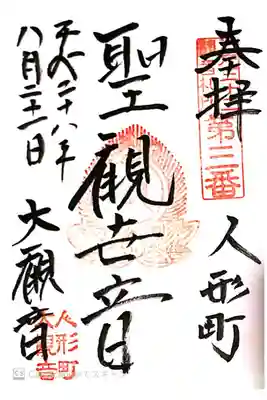 奉拝
第三番
人形町
聖觀世音
大觀音
人形町
大観音
平成二十八年
八月二十一日